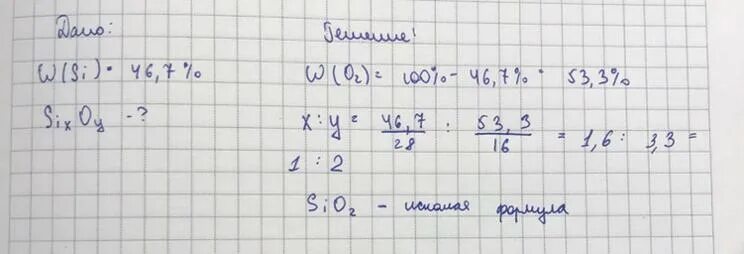 Дано:
W(Si) = 46,7%
SixOy - ?
Решение:
W(O2) = 100% - 46,7% = 53,3%
x : y = 46,7/28 : 53,3/16 = 1,6 : 3,3 =
1 : 2
SiO2 - искомая формула